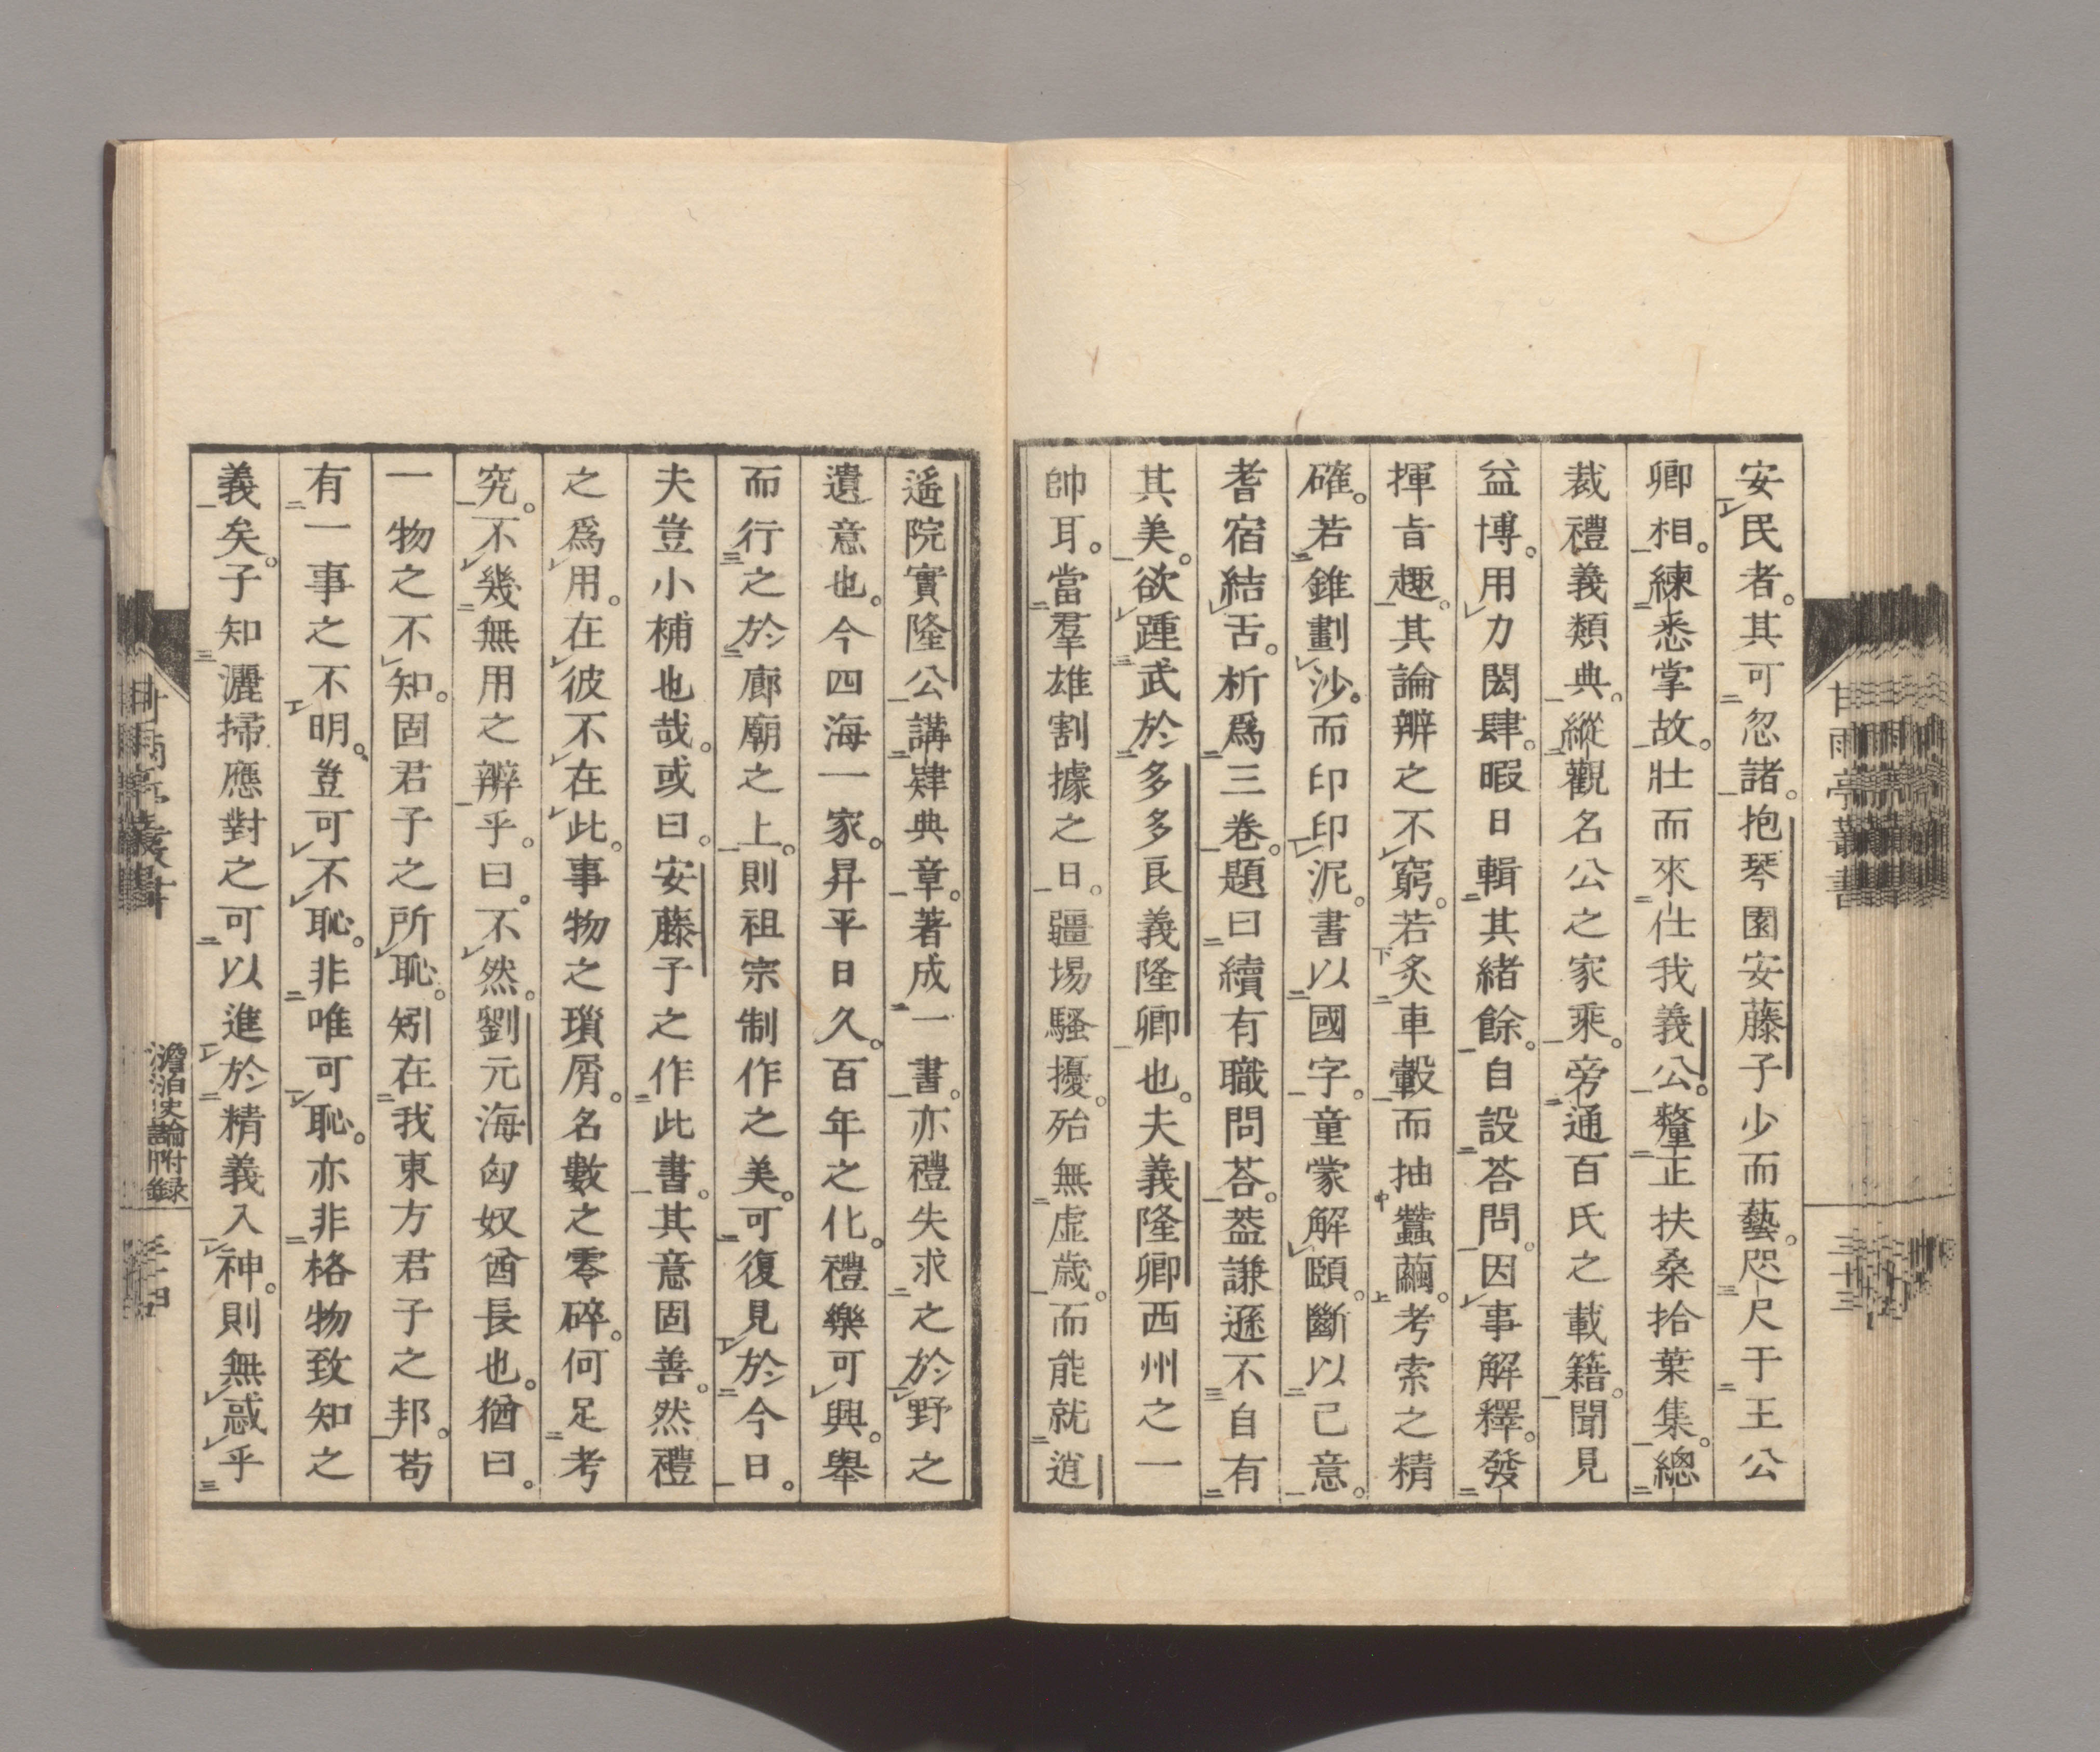 安民者。其可忽諸。抱琴園安藤子少而藝。咫尺于王公
卿相。練悉掌故。壯而來仕我義公。釐正扶桑拾葉集。總
裁禮義類典。縱觀名公之家乘。旁通百氏之載籍。聞見
益博。用力閎肆。暇日輯其緒餘。自設荅問。因事解釋。發
揮旨趣。其論辨之不窮。若炙車轂而抽蠶繭。考索之精
確。若錐劃沙。而印印泥。書以國字。童蒙解頤。斷以己意。
耆宿結舌。析爲三卷。題曰續有職問荅。蓋謙遜不自有
其美。欲踵武於多多良義隆卿也。夫義隆卿西州之一
帥耳。當羣雄割據之日。疆埸騷擾。殆無虛歲。而能就逍
遙院實隆公講肄典章。著成一書。亦禮失求之於野之
遺意也。今四海一家。昇平日久。百年之化。禮樂可興。舉
而行之於廊廟之上。則祖宗制作之美。可復見於今日。
夫豈小補也哉。或曰。安藤子之作此書。其意固善。然禮
之爲用。在彼不在此。事物之瑣屑。名數之零碎。何足考
究。不幾無用之辨乎。曰。不然。劉元海匈奴酋長也。猶曰。
一物之不知。固君子之所恥。矧在我東方君子之邦。苟
有一事之不明。豈可不恥。非唯可恥。亦非格物致知之
義矣。子知灑掃應對之可以進於精義入神。則無惑乎
甘雨亭叢書
三十三
甘雨亭叢書
澹泊史論附録
三十四